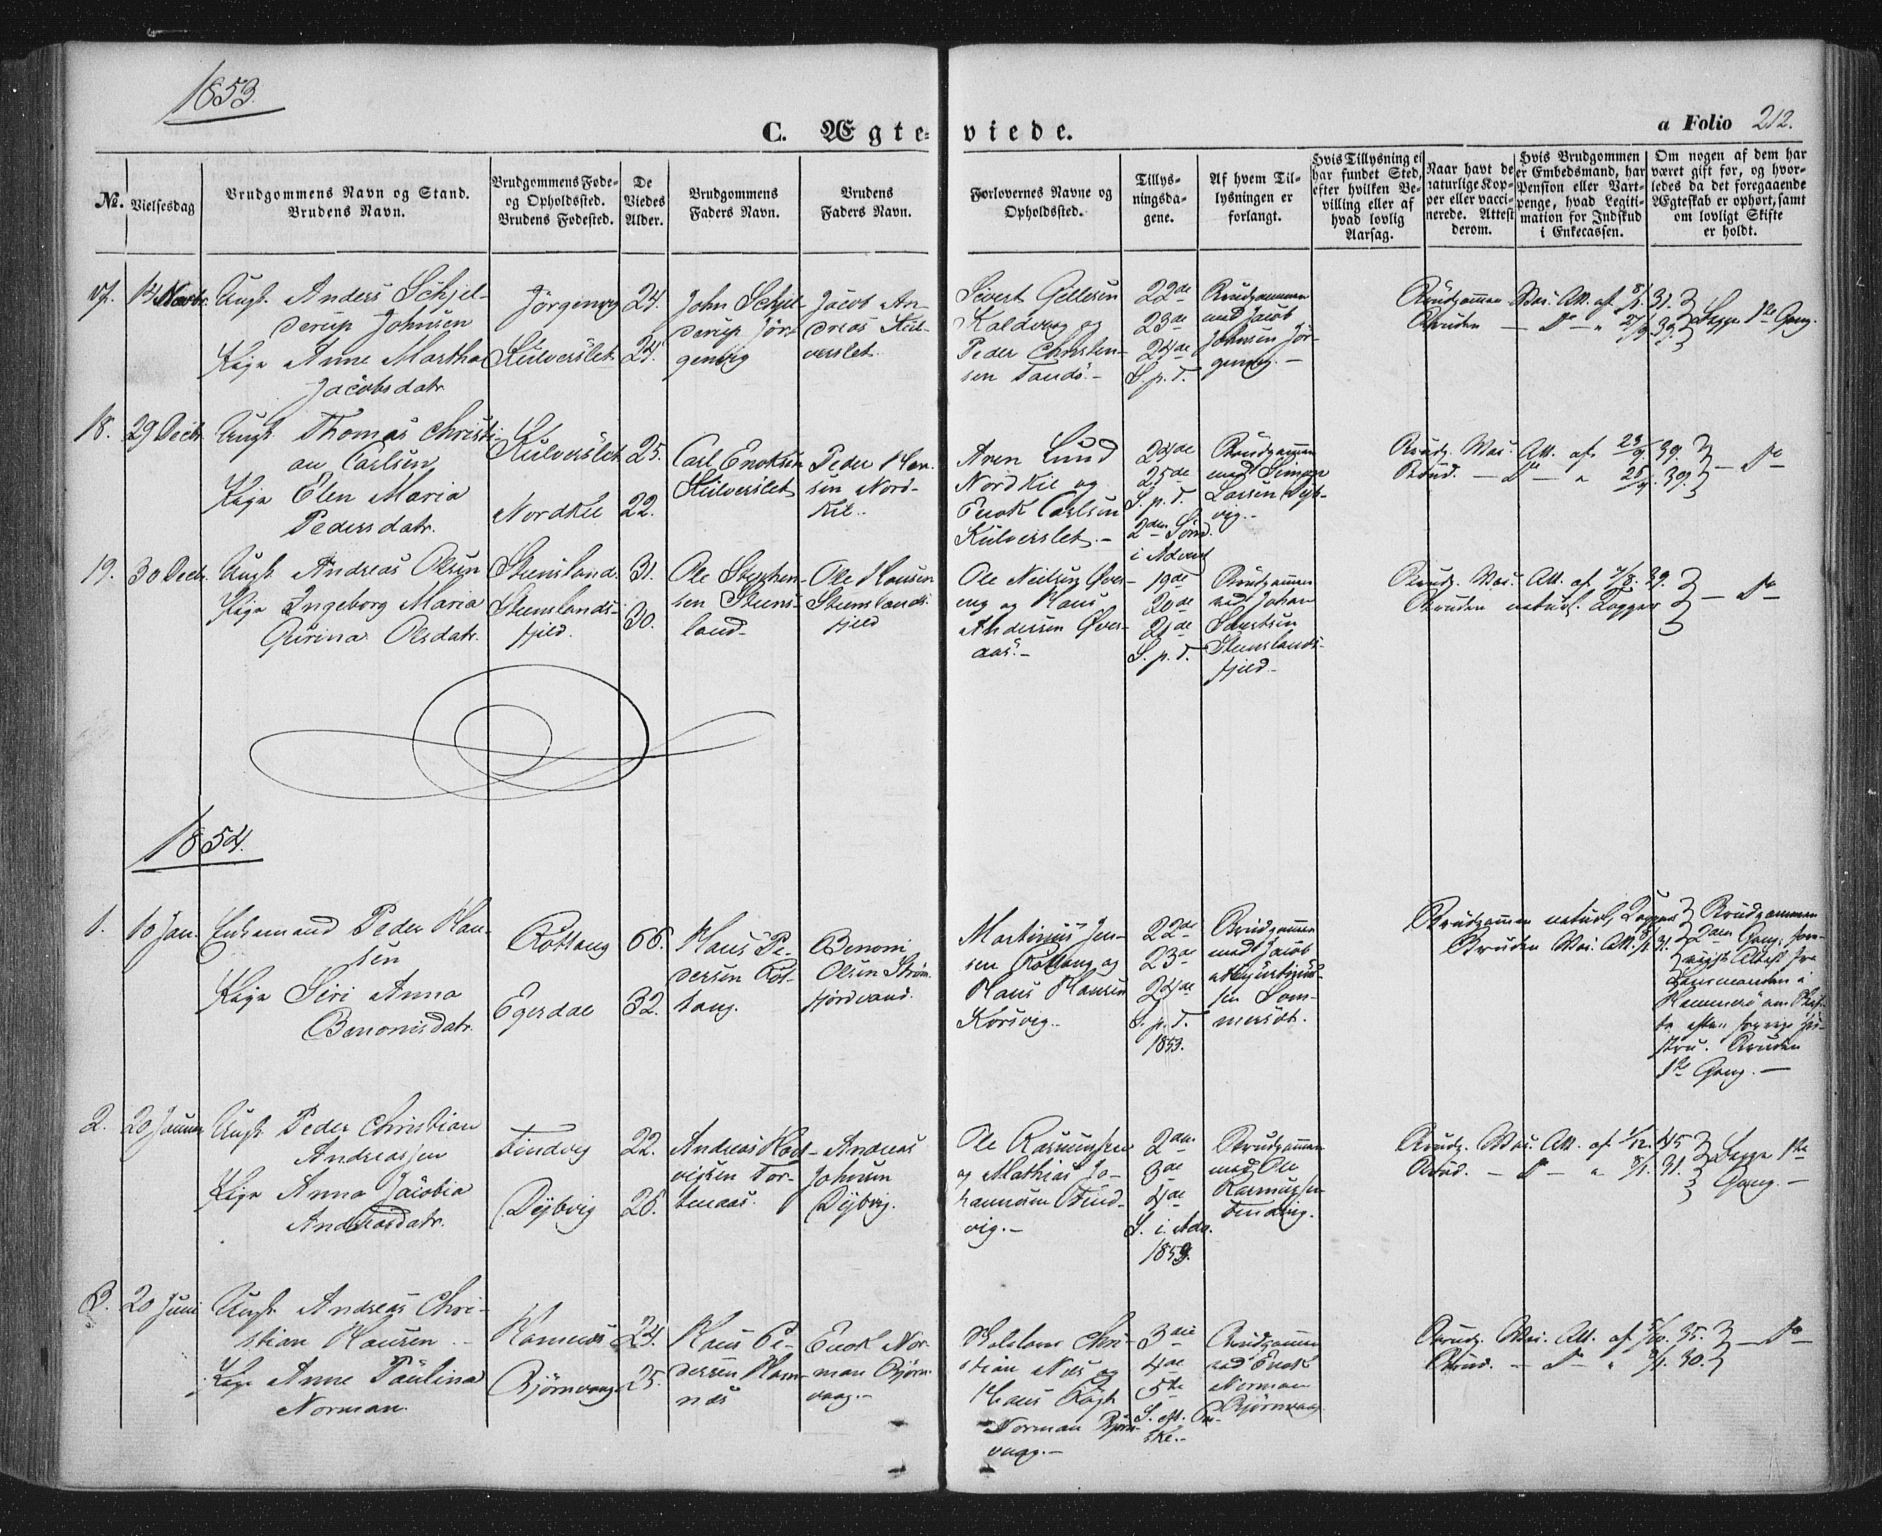 1853.
C. Ægteviede.
a Folio 212.
No.
Vielsesdag
Brudgommens Navn og Stand.
Brudens Navn.
Brudgommens Føde-
og Opholdssted.
Brudens Fødested.
De
Viedes
Alder.
Brudgommens
Faders Navn.
Brudens
Faders Navn.
Forlovernes Navne og
Opholdssted.
Tillys-
ningsda-
gene.
Af hvem Til-
lysningen er
forlangt.
Hvis Tillysning ei
har fundet Sted,
efter hvilken Be-
villing eller af
hvad lovlig
Aarsag.
Naar havt de
naturlige Kop-
per eller vacci-
nerede. Attest
derom.
Hvis Brudgommen
er Embedsmand, har
Pension eller Vart-
penge, hvad Legiti-
mation for Indskud
i Enkecassen.
Om nogen af dem har
været gift før, og hvor-
ledes da det foregaaende
Ægteskab er ophørt, samt
om lovligt Skifte
er holdt.
17. 14 Novbr.
Ungk. Anders Schjel-
derup Johnsen
Pige Anne Martha
Jacobsdatr.
Jörgenvig
Kulverslet
24.
24.
John Schjel-
derup Jör-
genvig
Jacob An-
dreas Kul-
verslet.
Sivert Pettersen
Kaldvaag og
Peder Christen-
sen Tandö.-
22de
23de
24de
S. p. T.
Brudgommen
ved Jacob
Johnsen Jör-
genvig.-
Brudgommen Vac. Att. af 8/1. 31.
Bruden - Do - " 39.
Begge 1te Gang.
18. 29 Decbr.
Ungk. Thomas Christi-
an Carlsen
Pige Elen Maria
Pedersdatr.
Kulverslet
Nordkil
25.
22.
Carl Enoksen
Kulverslet
Peder Han-
sen Nord-
kil.
Aren Lund
Nordkil og
Enok Carlsen
Kulverslet.-
24de
25de
S. p. T.
2den Sönd.
i Advent
Brudgommen
ved Simon
Larsen Dyb-
vig.-
Brudg. Vac. Att. af 23/9. 39.
Brud. - Do - " 25/9. 39.
- Do -
19. 30 Decbr.
Ungk. Andreas Olsen
Pige Ingeborg Maria
Gurina Olsdatr.
Steensland.
Steenslands-
fjeld.
31.
30.
Ole Stephen-
sen Steens-
land-
Ole Hansen
Steenslands-
fjeld
Ole Nielsen Över-
eng og Hans
Andersen Över-
aas.-
19de
20de
21de
S. p. T.
Brudgommen
ved Johan
Sivertsen
Steenslands-
fjeld.-
Brudg. Vac. Att. af 7/8. 39.
Bruden naturl. Kopper
- Do -
1854.
1. 10 Jan.
Enkemand Peder Han-
sen
Pige Siri Anna
Benonisdatr.
Rottang
Egesdal
66.
32.
Hans Pe-
dersen Rot-
tang.
Benoni
Olsen Ström-
fjordvand.
Martinus Jen-
sen Rottang og
Hans Hansen
Korsvig.
22de
23de
24de
S. p. T.
1853.
Brudgommen
ved Jacob
Som-
mersæt.
Brudgommen naturl. Kopper
Bruden Vac. Att. 8/1. 31.
Brudgommen
2den Gang, fore-
viist Attest fra
Lensmanden i
Hammerö om Skif-
te efter forrige Hu-
stru. Bruden
1te Gang.-
2. 20 Januar
Ungk. Peder Christian
Andreassen
Pige Anna Jacobia
Andreasdatr.
Findvig
Dybvig
22.
26.
Andreas Hed-
vigsen Tor-
tenaas.
Andreas
Johnsen
Dybvig.
Ole Rasmussen
og Mathias Jo-
hannesen Find-
vig.-
2den
3de
4de
S. i Adv.
1853.
Brudgommen
ved Ole
Rasmussen
Findvig.
Brudg. Vac. Att. af 1/12. 45
Brud. - Do - " 8/1. 31.
Begge 1te
Gang.-
3. 20 Juni
Ungk. Andreas Chri-
stian Hansen
Pige Anne Paulina
Norman.
Hamnæs
Björnvaag
24.
25.
Hans Pe-
dersen Ham-
næs
Enok Nor-
man Björn-
vaag.-
Christian Næs og
Hans Kögh
Norman Björn-
vaag.-
3die
4de
5te
S. eft. Paa-
ske.-
Brudgommen
ved Enok
Norman
Björnvaag
Brudg. Vac. Att. af 5/10. 35.
Brud. - Do - " 8/1. 30.
- Do -